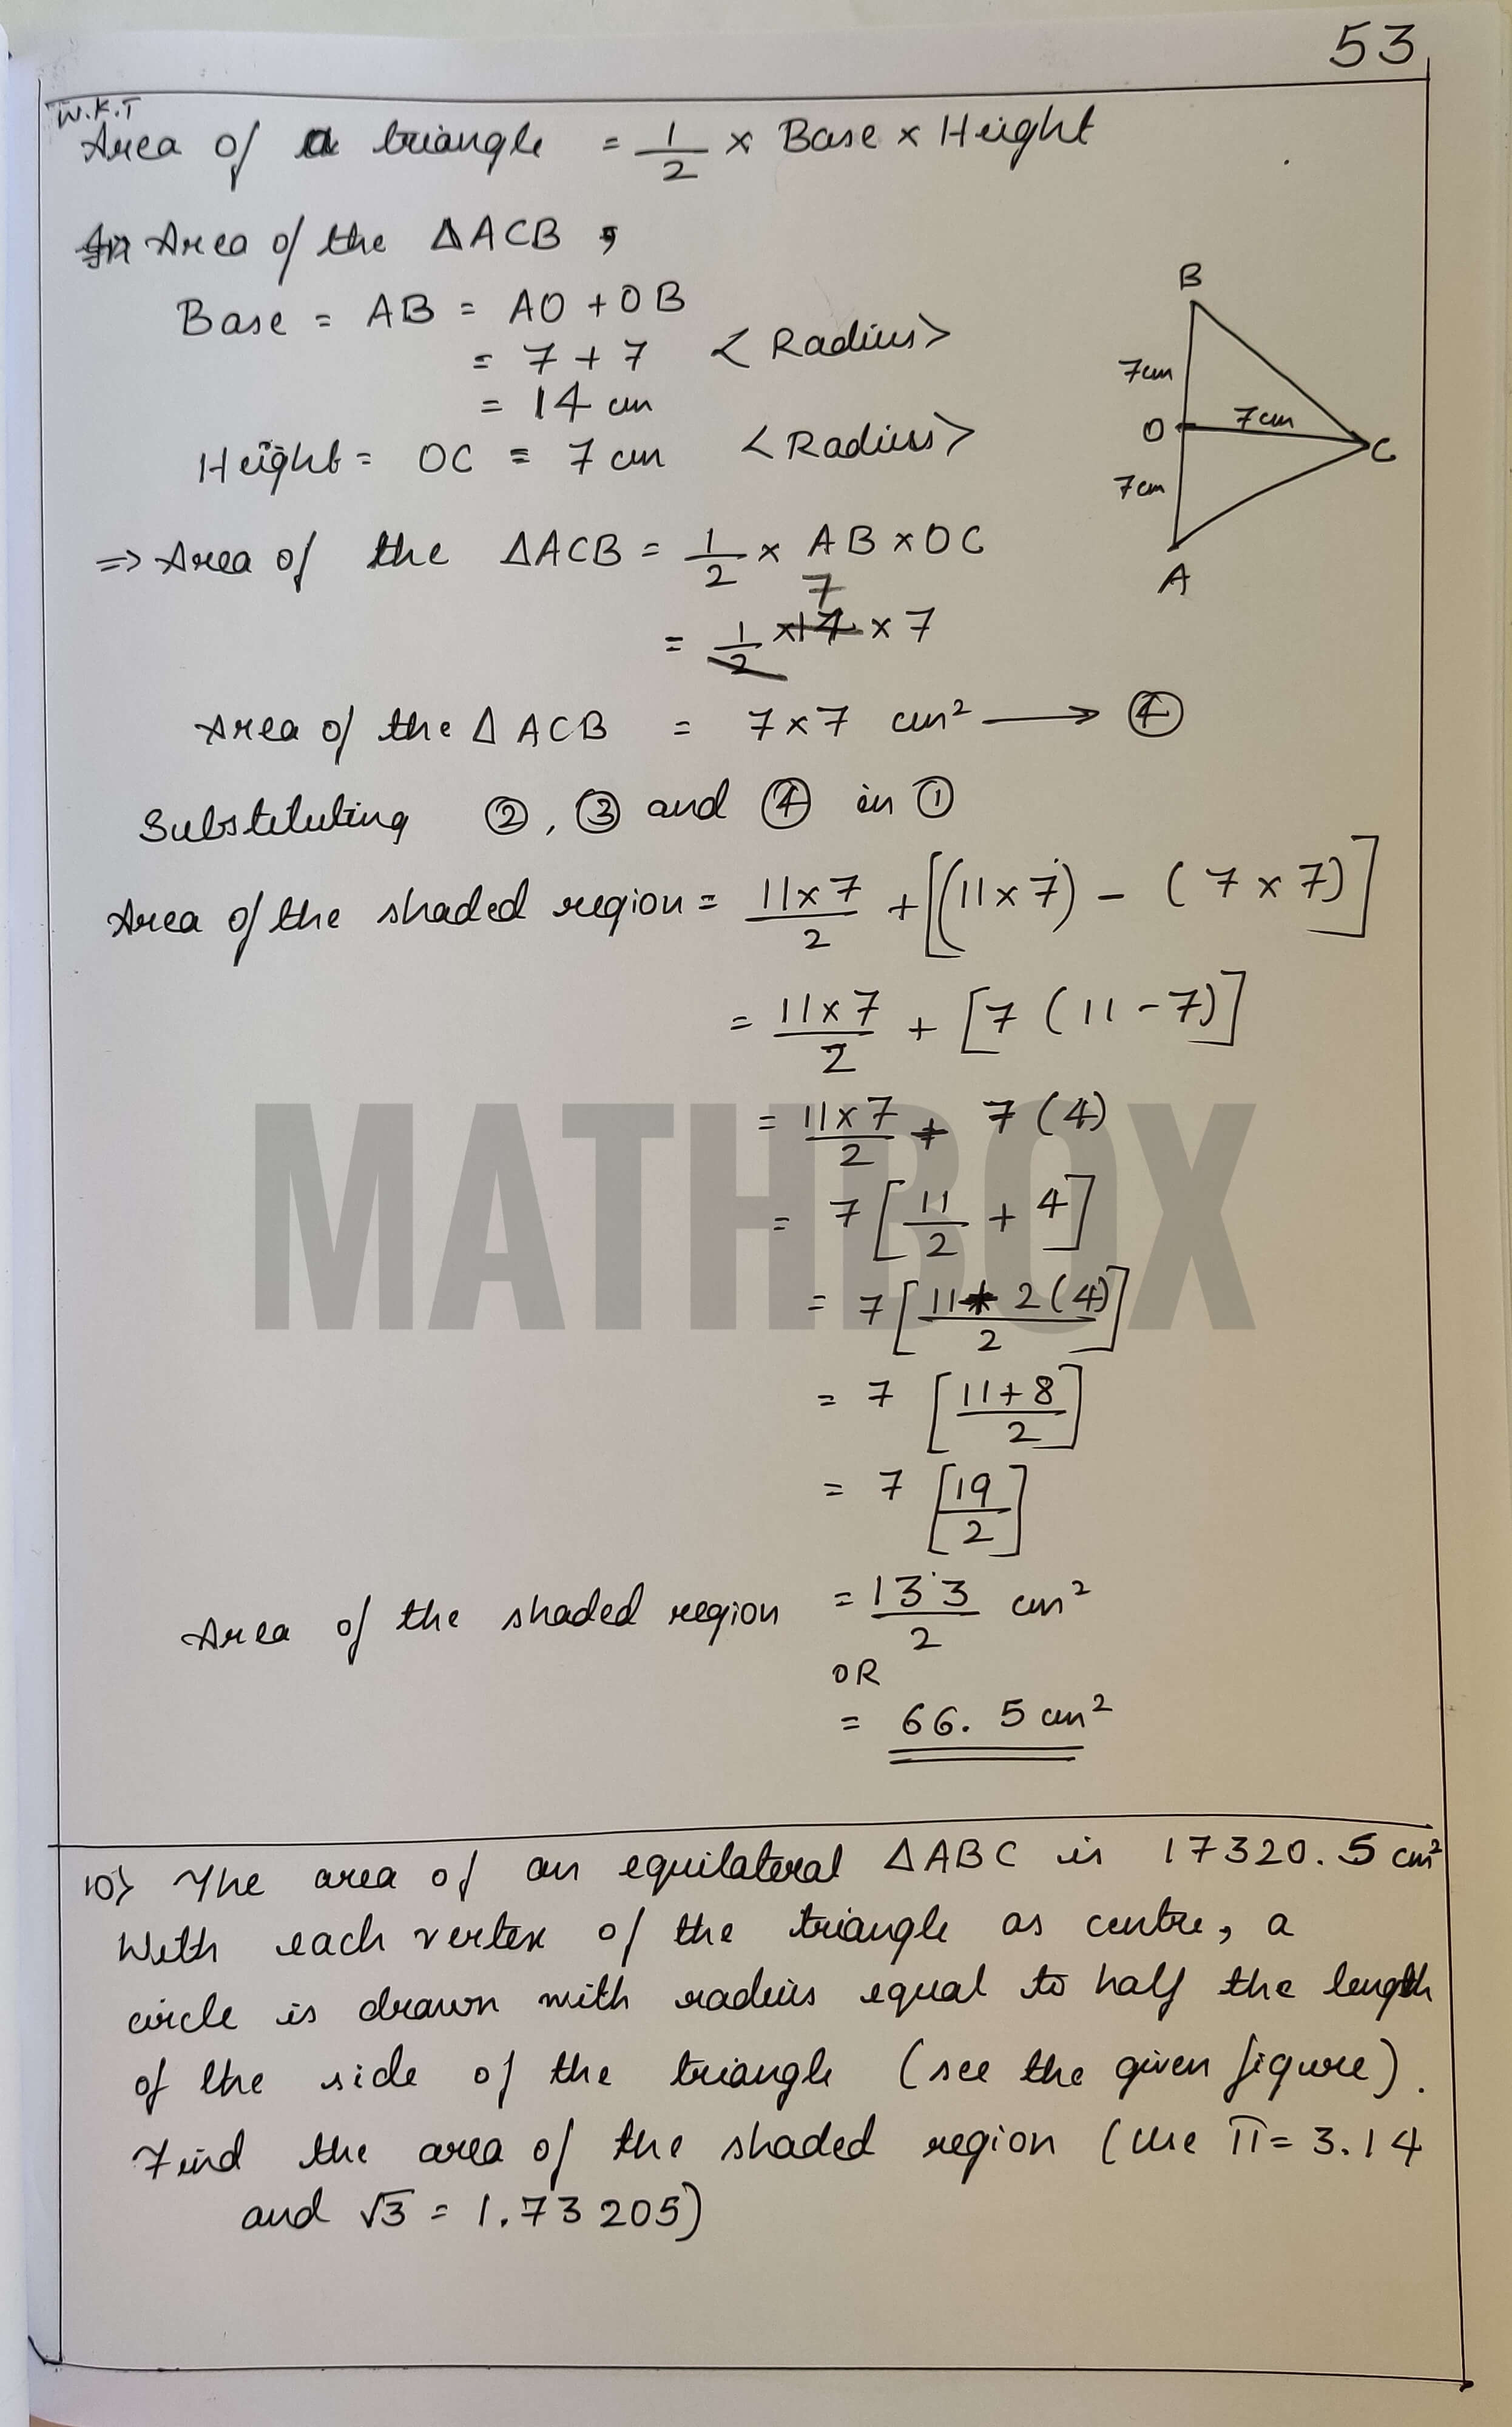 53
W.K.T
Area of a triangle = 1/2 × Base × Height
Area of the ΔACB,
Base = AB = AO + OB
= 7 + 7 <Radius>
= 14 cm
Height = OC = 7 cm <Radius>
B
7cm
O
7cm
C
7cm
A
⇒ Area of the ΔACB = 1/2 × AB × OC
7
= 1/2 × 14 × 7
Area of the Δ ACB = 7 × 7 cm² ⟶ ④
Substituting ②, ③ and ④ in ①
Area of the shaded region = 11×7/2 + [(11×7) - (7×7)]
= 11×7/2 + [7 (11-7)]
= 11×7/2 + 7(4)
= 7 [11/2 + 4]
= 7 [11+2(4)/2]
= 7 [11+8/2]
= 7 [19/2]
Area of the shaded region = 133/2 cm²
OR
= 66.5 cm²
MATHBOX
10) The area of an equilateral ΔABC is 17320.5 cm²
With each vertex of the triangle as centre, a
circle is drawn with radius equal to half the length
of the side of the triangle (see the given figure).
Find the area of the shaded region (use π = 3.14
and √3 = 1.73205)